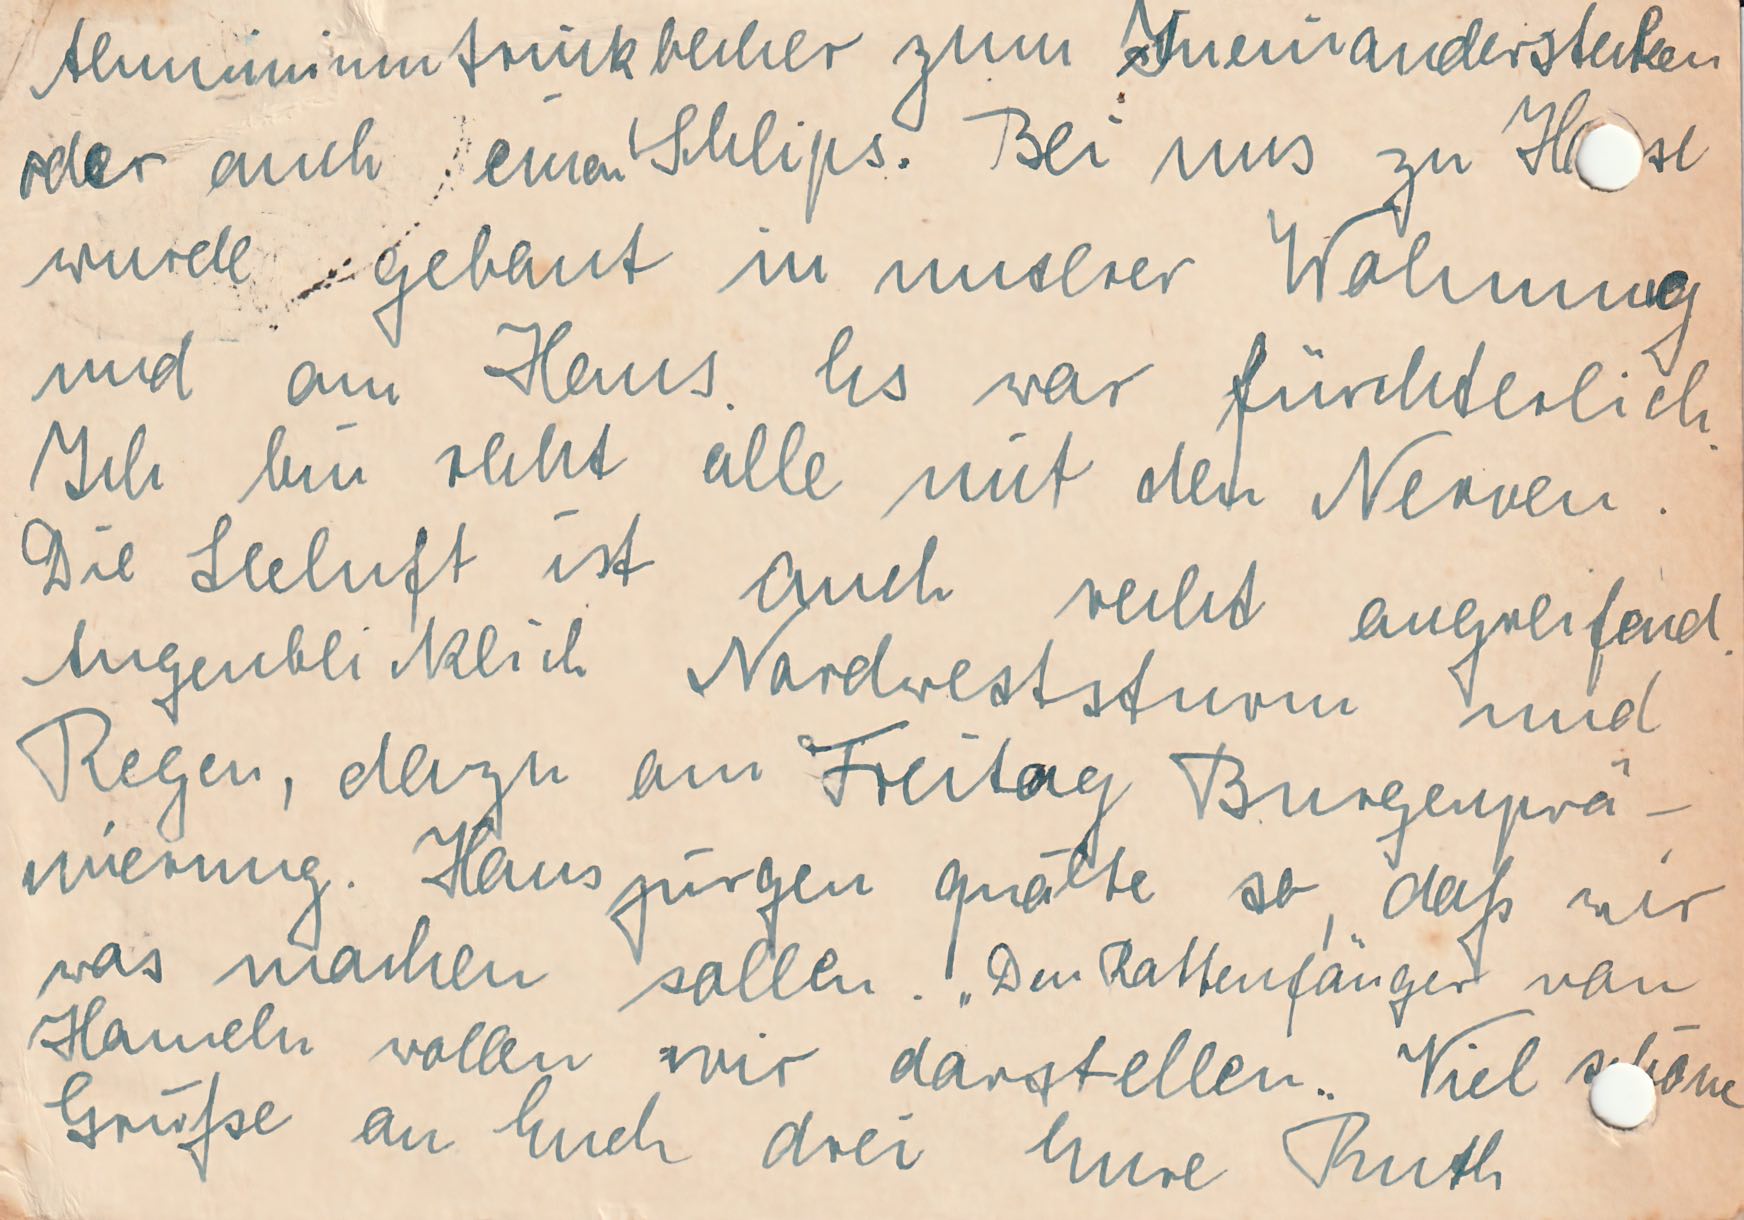 Aluminiumtrinkbecher zum Ineinanderstecken
oder auch einen Schlips. Bei uns zu Hause
wurde gebaut in unserer Wohnung
und am Haus. Es war fürchterlich.
Ich bin recht alle mit den Nerven.
Die Seeluft ist auch recht angreifend.
Augenblicklich Nordweststurm und
Regen, dazu am Freitag Burgenprä-
mierung. Hansjürgen quälte so, daß wir
was machen sollen. „Den Rattenfänger von
Hameln wollen wir darstellen." Viel schöne
Grüße an Euch drei Eure Ruth